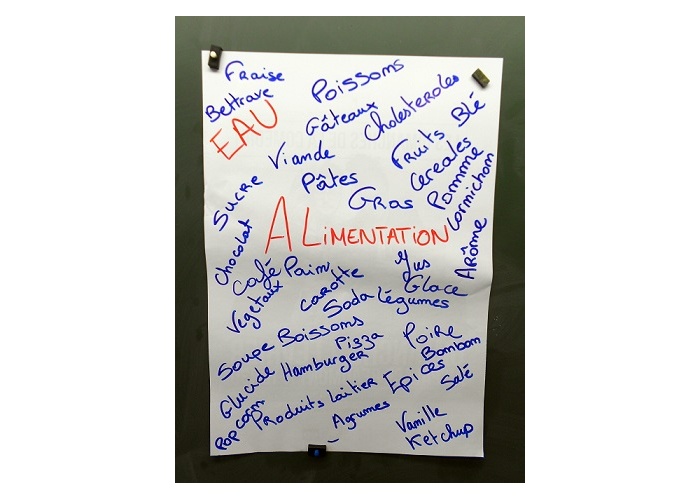 Fraise
Poissons
Bettrave
Gâteaux
Cholesteroles
EAU
Blé
Viande
Fruits
Pâtes
Cereales
Sucre
Gras
Pomme
Cormichon
ALIMENTATION
Arôme
Chocolat
Café
Pain
Jus
Vegetaux
Carotte
Glace
Soda
Légumes
Soupe
Boissons
Pizza
Poire
Hamburger
Bombom
Glucide
Epices
Salé
Popcorn
Produits Laitier
Agrumes
Vanille
Ketchup